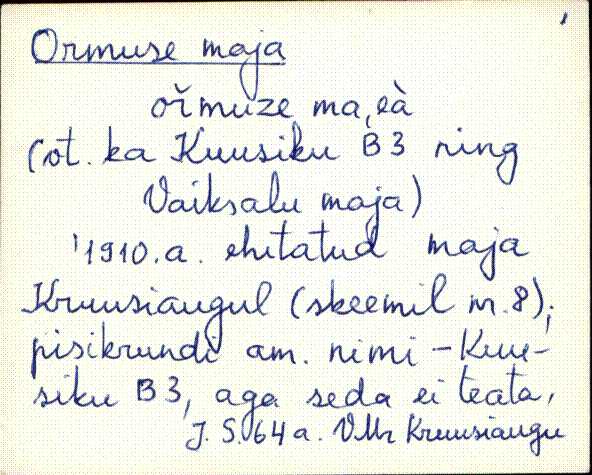 Ormuse maja
ořmuze ma,eà
(vt. ka Kuusiku B3 ning
Vaiksalu maja)
1910.a. ehitatud maja
Kruusiaugul (skeemil nr. 8);
pisikrundi am. nimi - Kuu-
siku B3, aga seda ei teata,
J. S. 64 a. VMr Kruusiaugu